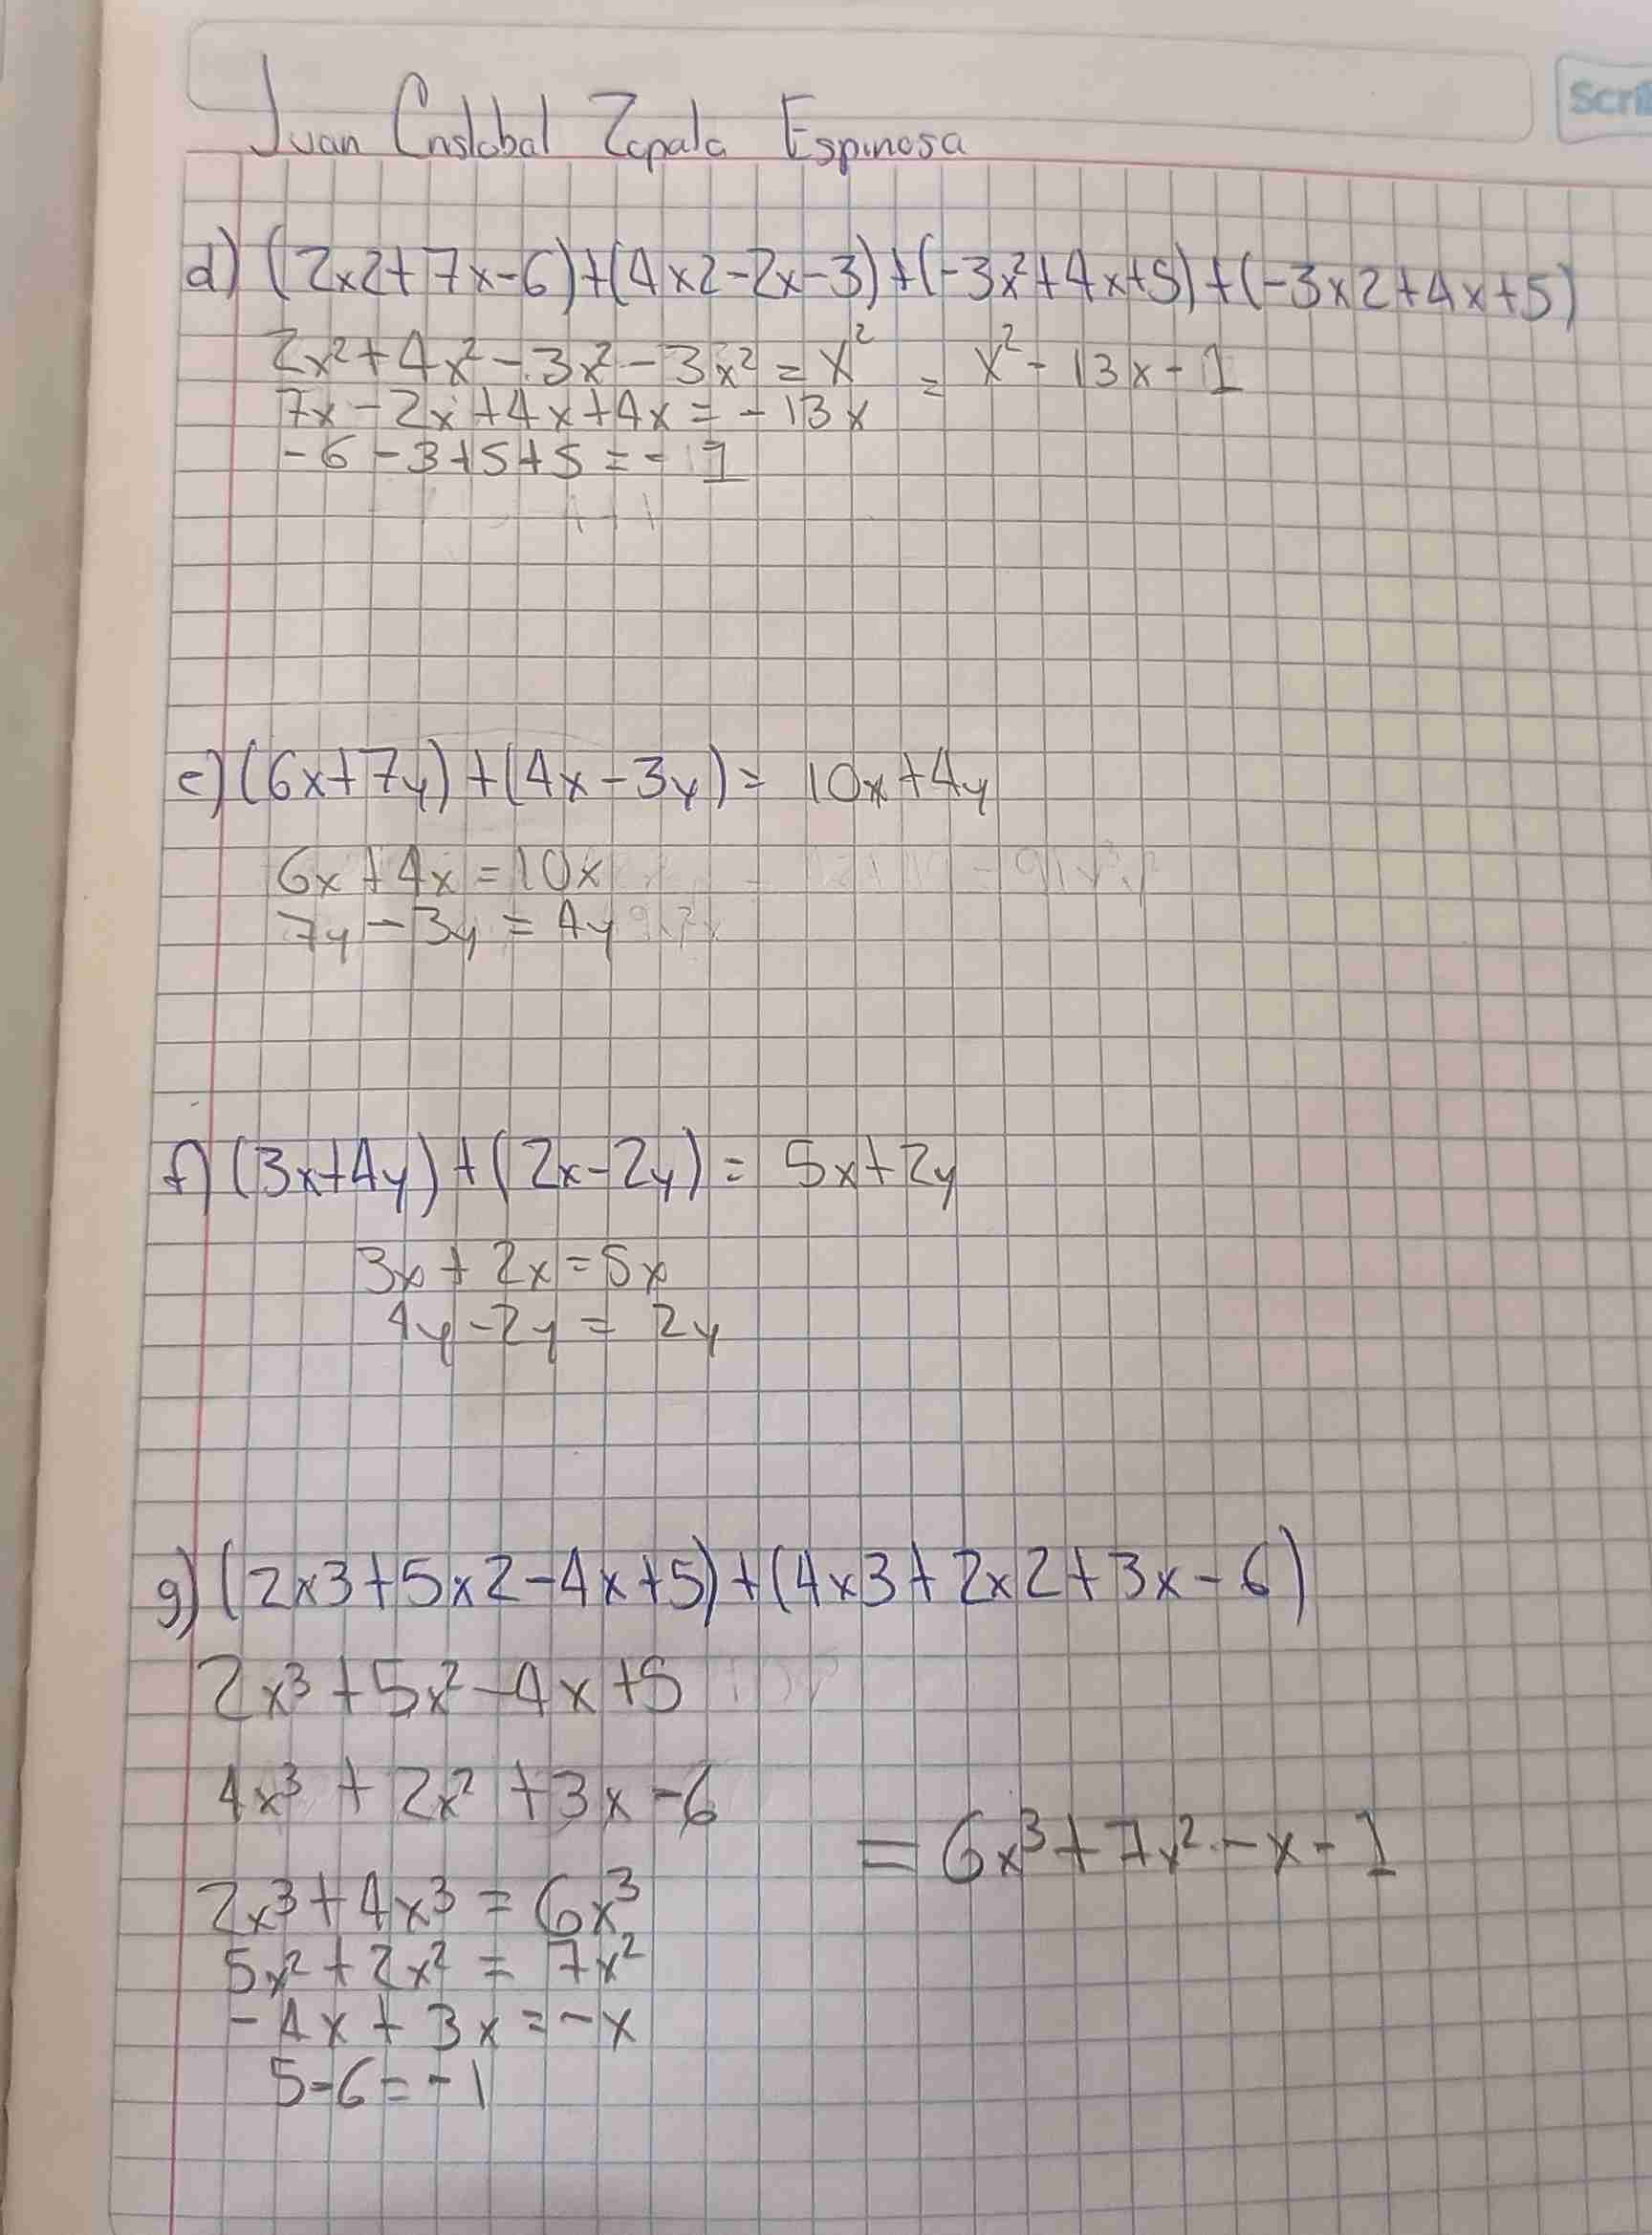 Scri
Juan Cristobal Zapata Espinosa
d) (2x2+7x-6)+(4x2-2x-3)+(-3x²+4x+5)+(-3x2+4x+5)
2x²+4x²-3x²-3x²=x² = x²-13x-1
7x-2x+4x+4x=-13x
-6-3+5+5=-1
e) (6x+7y)+(4x-3y)= 10x+4y
6x+4x=10x
7y-3y=4y
f) (3x+4y)+(2x-2y)= 5x+2y
3x+2x=5x
4y-2y=2y
g) (2x3+5x2-4x+5)+(4x3+2x2+3x-6)
2x³+5x²-4x+5
4x³+2x²+3x-6
= 6x³+7x²-x-1
2x³+4x³=6x³
5x²+2x²=7x²
-4x+3x=-x
5-6=-1